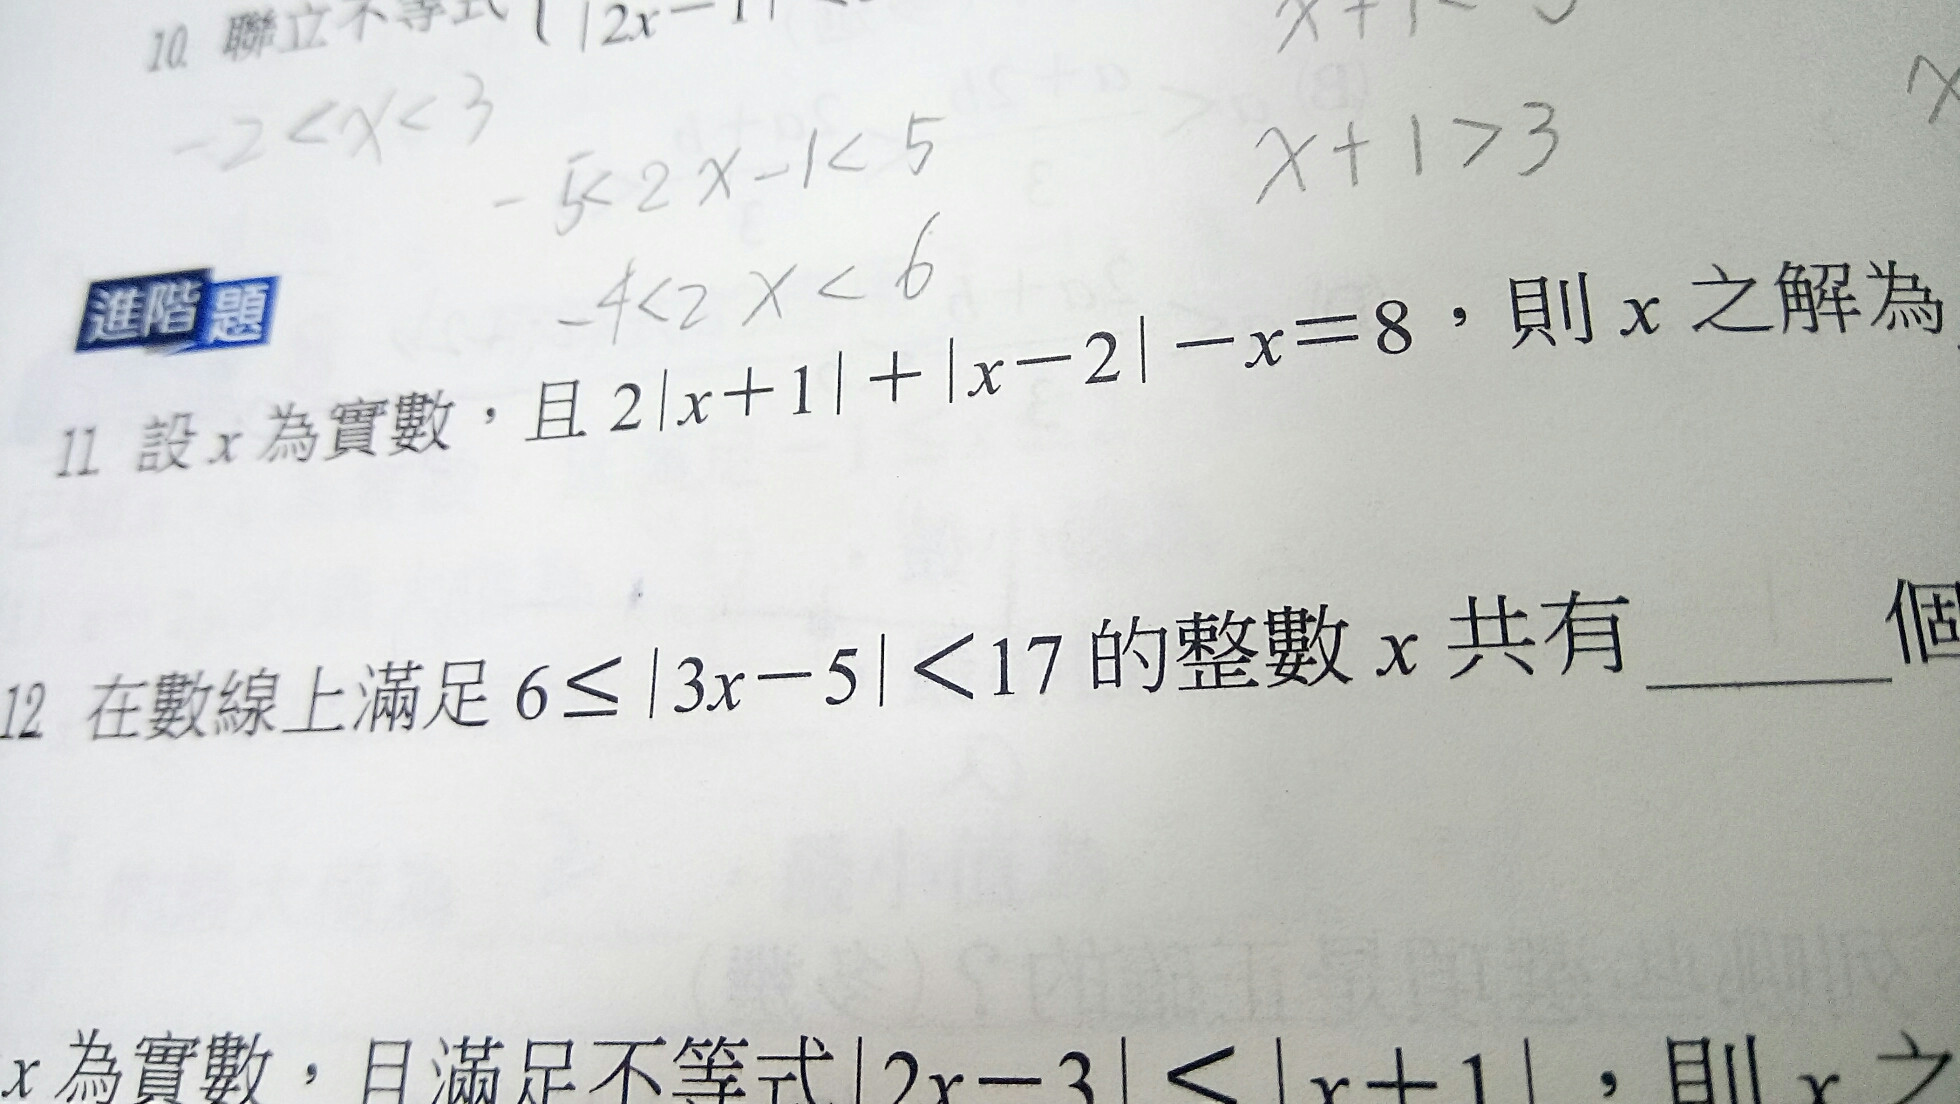 10. 聯立不等式 |2x-1|
x+1<
-2<x<3
-5<2x-1<5
x+1>3
x
-4<2x<6
進階題
11 設 x 為實數，且 2|x+1|+|x-2|-x=8，則 x 之解為
12 在數線上滿足 6≤|3x-5|<17 的整數 x 共有______個
x 為實數，且滿足不等式|2x-3|<|x+1|，則 x 之